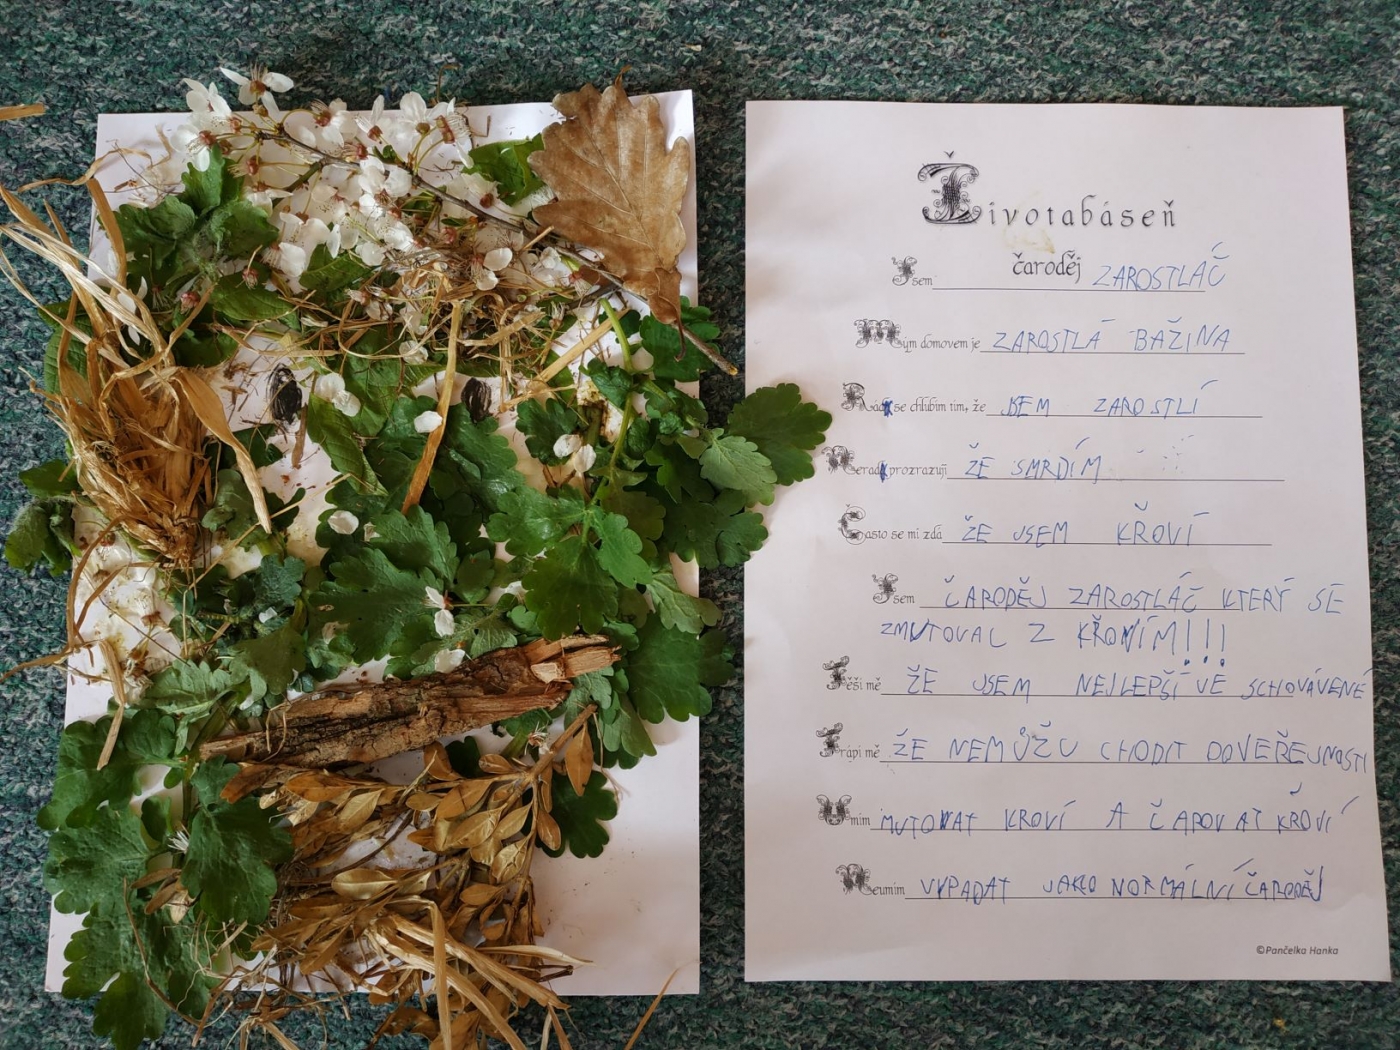 Životabáseň
Jsem čaroděj ZAROSTLÁČ
Mým domovem je ZAROSTLÁ BAŽINA
Rád se chlubím tím, že JSEM ZAROSTLÍ
Nerad prozrazuji ŽE SMRDÍM
Často se mi zdá ŽE JSEM KŘOVÍ
Jsem ČARODĚJ ZAROSTLÁČ KTERÝ SE
ZMUTOVAL Z KŘOVÍM!!!
Těší mě ŽE JSEM NEJLEPŠÍ VE SCHOVÁVENÉ
Trápí mě ŽE NEMŮŽU CHODIT DOVEŘEJNOSTI
Umím MUTOVAT KROVÍ A ČAROVAT KŘOVÍ
Neumím VYPADAT JAKO NORMÁLNÍ ČARODĚJ
©Pančelka Hanka